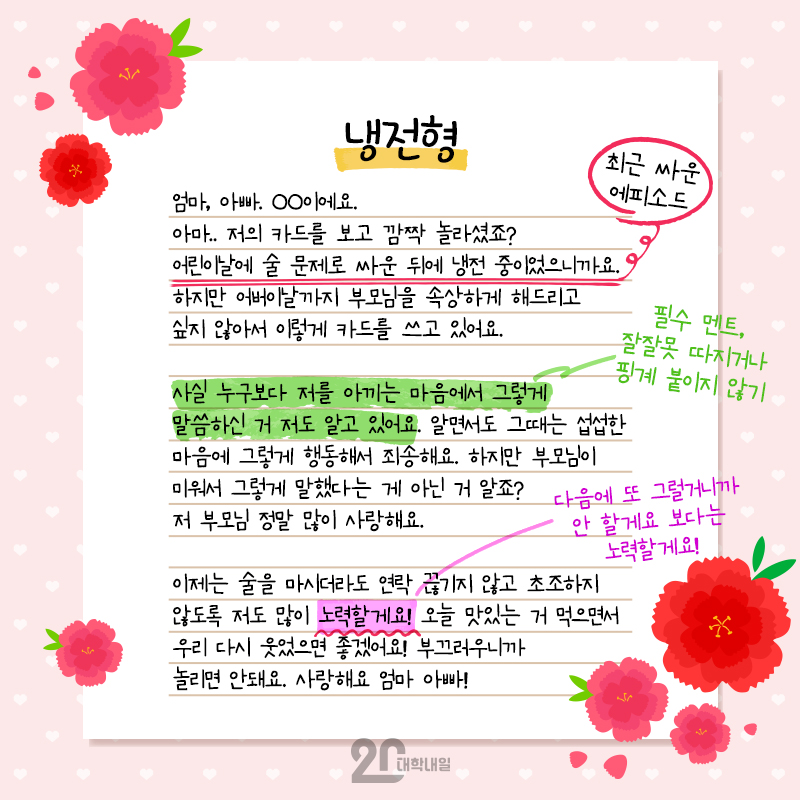 냉전형
최근 싸운
에피소드
엄마, 아빠. OO이에요.
아마.. 저의 카드를 보고 깜짝 놀라셨죠?
어린이날에 술 문제로 싸운 뒤에 냉전 중이었으니까요.
하지만 어버이날까지 부모님을 속상하게 해드리고
싶지 않아서 이렇게 카드를 쓰고 있어요.
필수 멘트,
잘잘못 따지거나
핑계 붙이지 않기
사실 누구보다 저를 아끼는 마음에서 그렇게
말씀하신 거 저도 알고 있어요. 알면서도 그때는 섭섭한
마음에 그렇게 행동해서 죄송해요. 하지만 부모님이
미워서 그렇게 말했다는 게 아닌 거 알죠?
저 부모님 정말 많이 사랑해요.
다음에 또 그럴거니까
안 할게요 보다는
노력할게요!
이제는 술을 마시더라도 연락 끊기지 않고 초조하지
않도록 저도 많이 노력할게요! 오늘 맛있는 거 먹으면서
우리 다시 웃었으면 좋겠어요! 부끄러우니까
놀리면 안돼요. 사랑해요 엄마 아빠!
20 대학내일